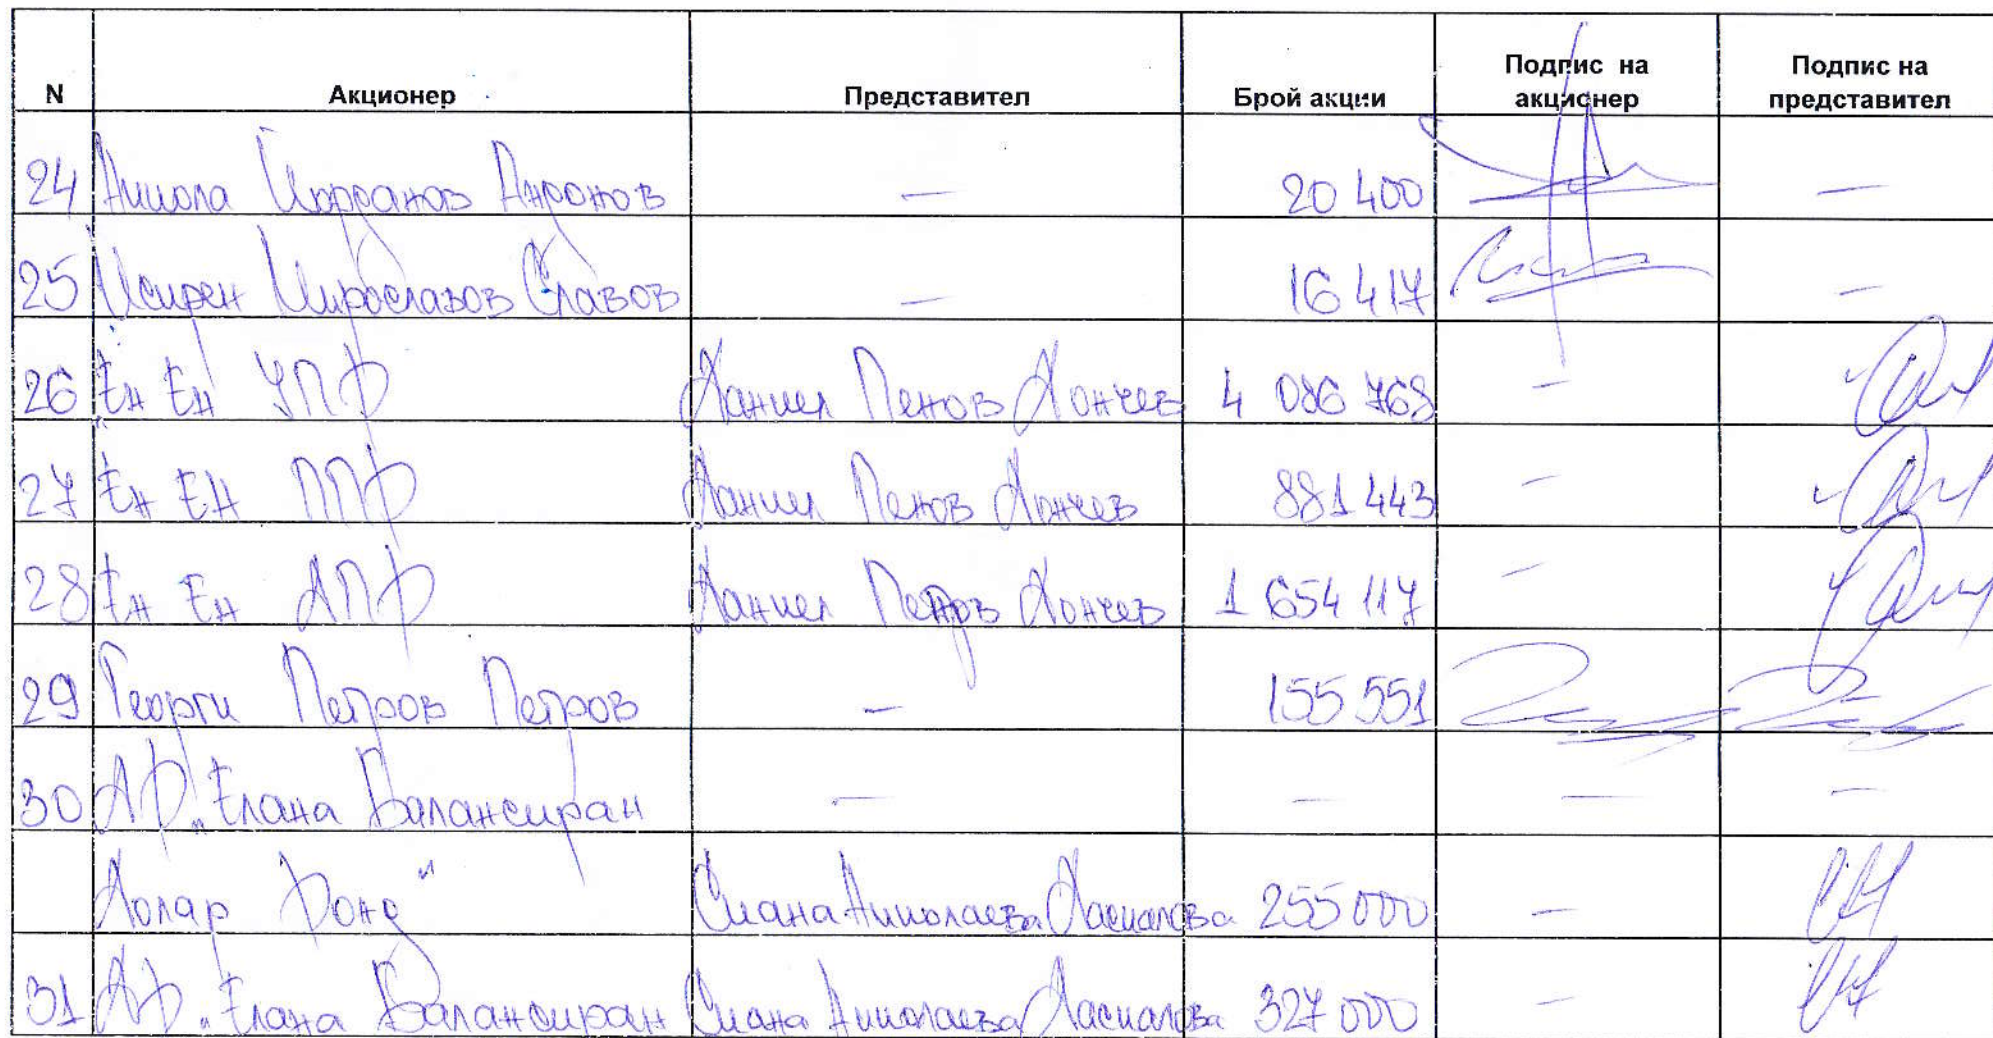 N Акционер Представител Брой акции Подпис на акционер Подпис на представител
24 Никола Йорданов Андонов — 20 400 —
25 Искрен Мирославов Славов — 16 417 —
26 Ен Ен УПФ Даниел Пенов Дончев 4 086 768 —
27 Ен Ен ППФ Даниел Пенов Дончев 881 443 —
28 Ен Ен ДПФ Даниел Дончев 1 654 117 —
29 Георги Петров Петров — 155 551
30 АФ "Елана Балансиран — — — —
Долар Фонд" Николаева 255 000 —
31 АФ "Елана Балансиран Николаева 327 000 —